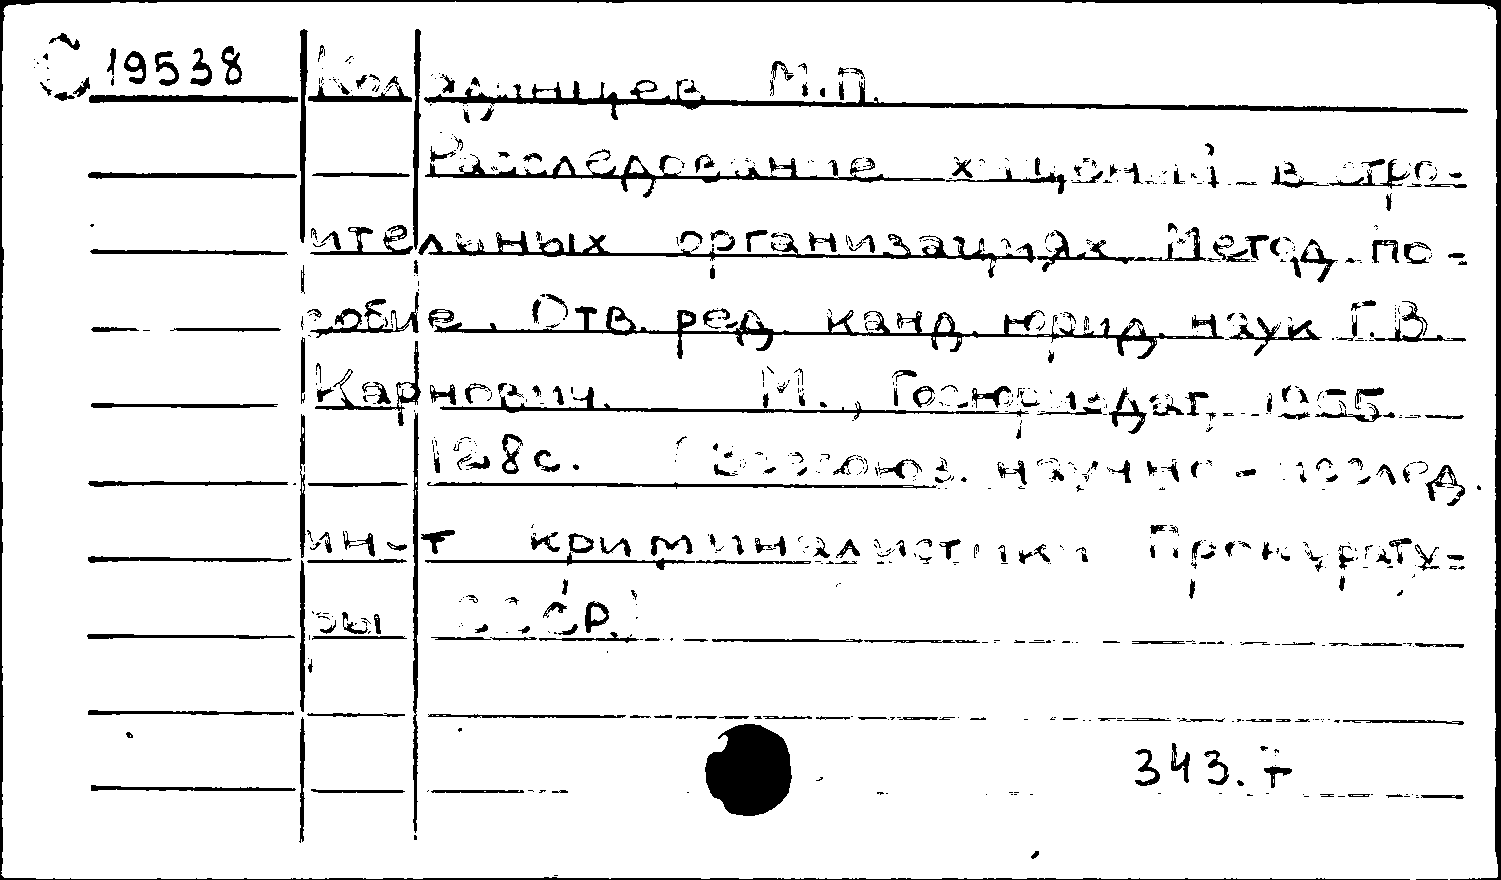 С 19538 Колядинцев М.П.
Расследование хищений в стро-
ительных организациях. Метод. по-
собие. Отв. ред. канд. юрид. наук Г.В.
Карнович. М., Госюриздат, 1955.
128с. (Всесоюз. научно-исслед.
ин-т криминалистики Прокурату-
ры СССР.)
343.7